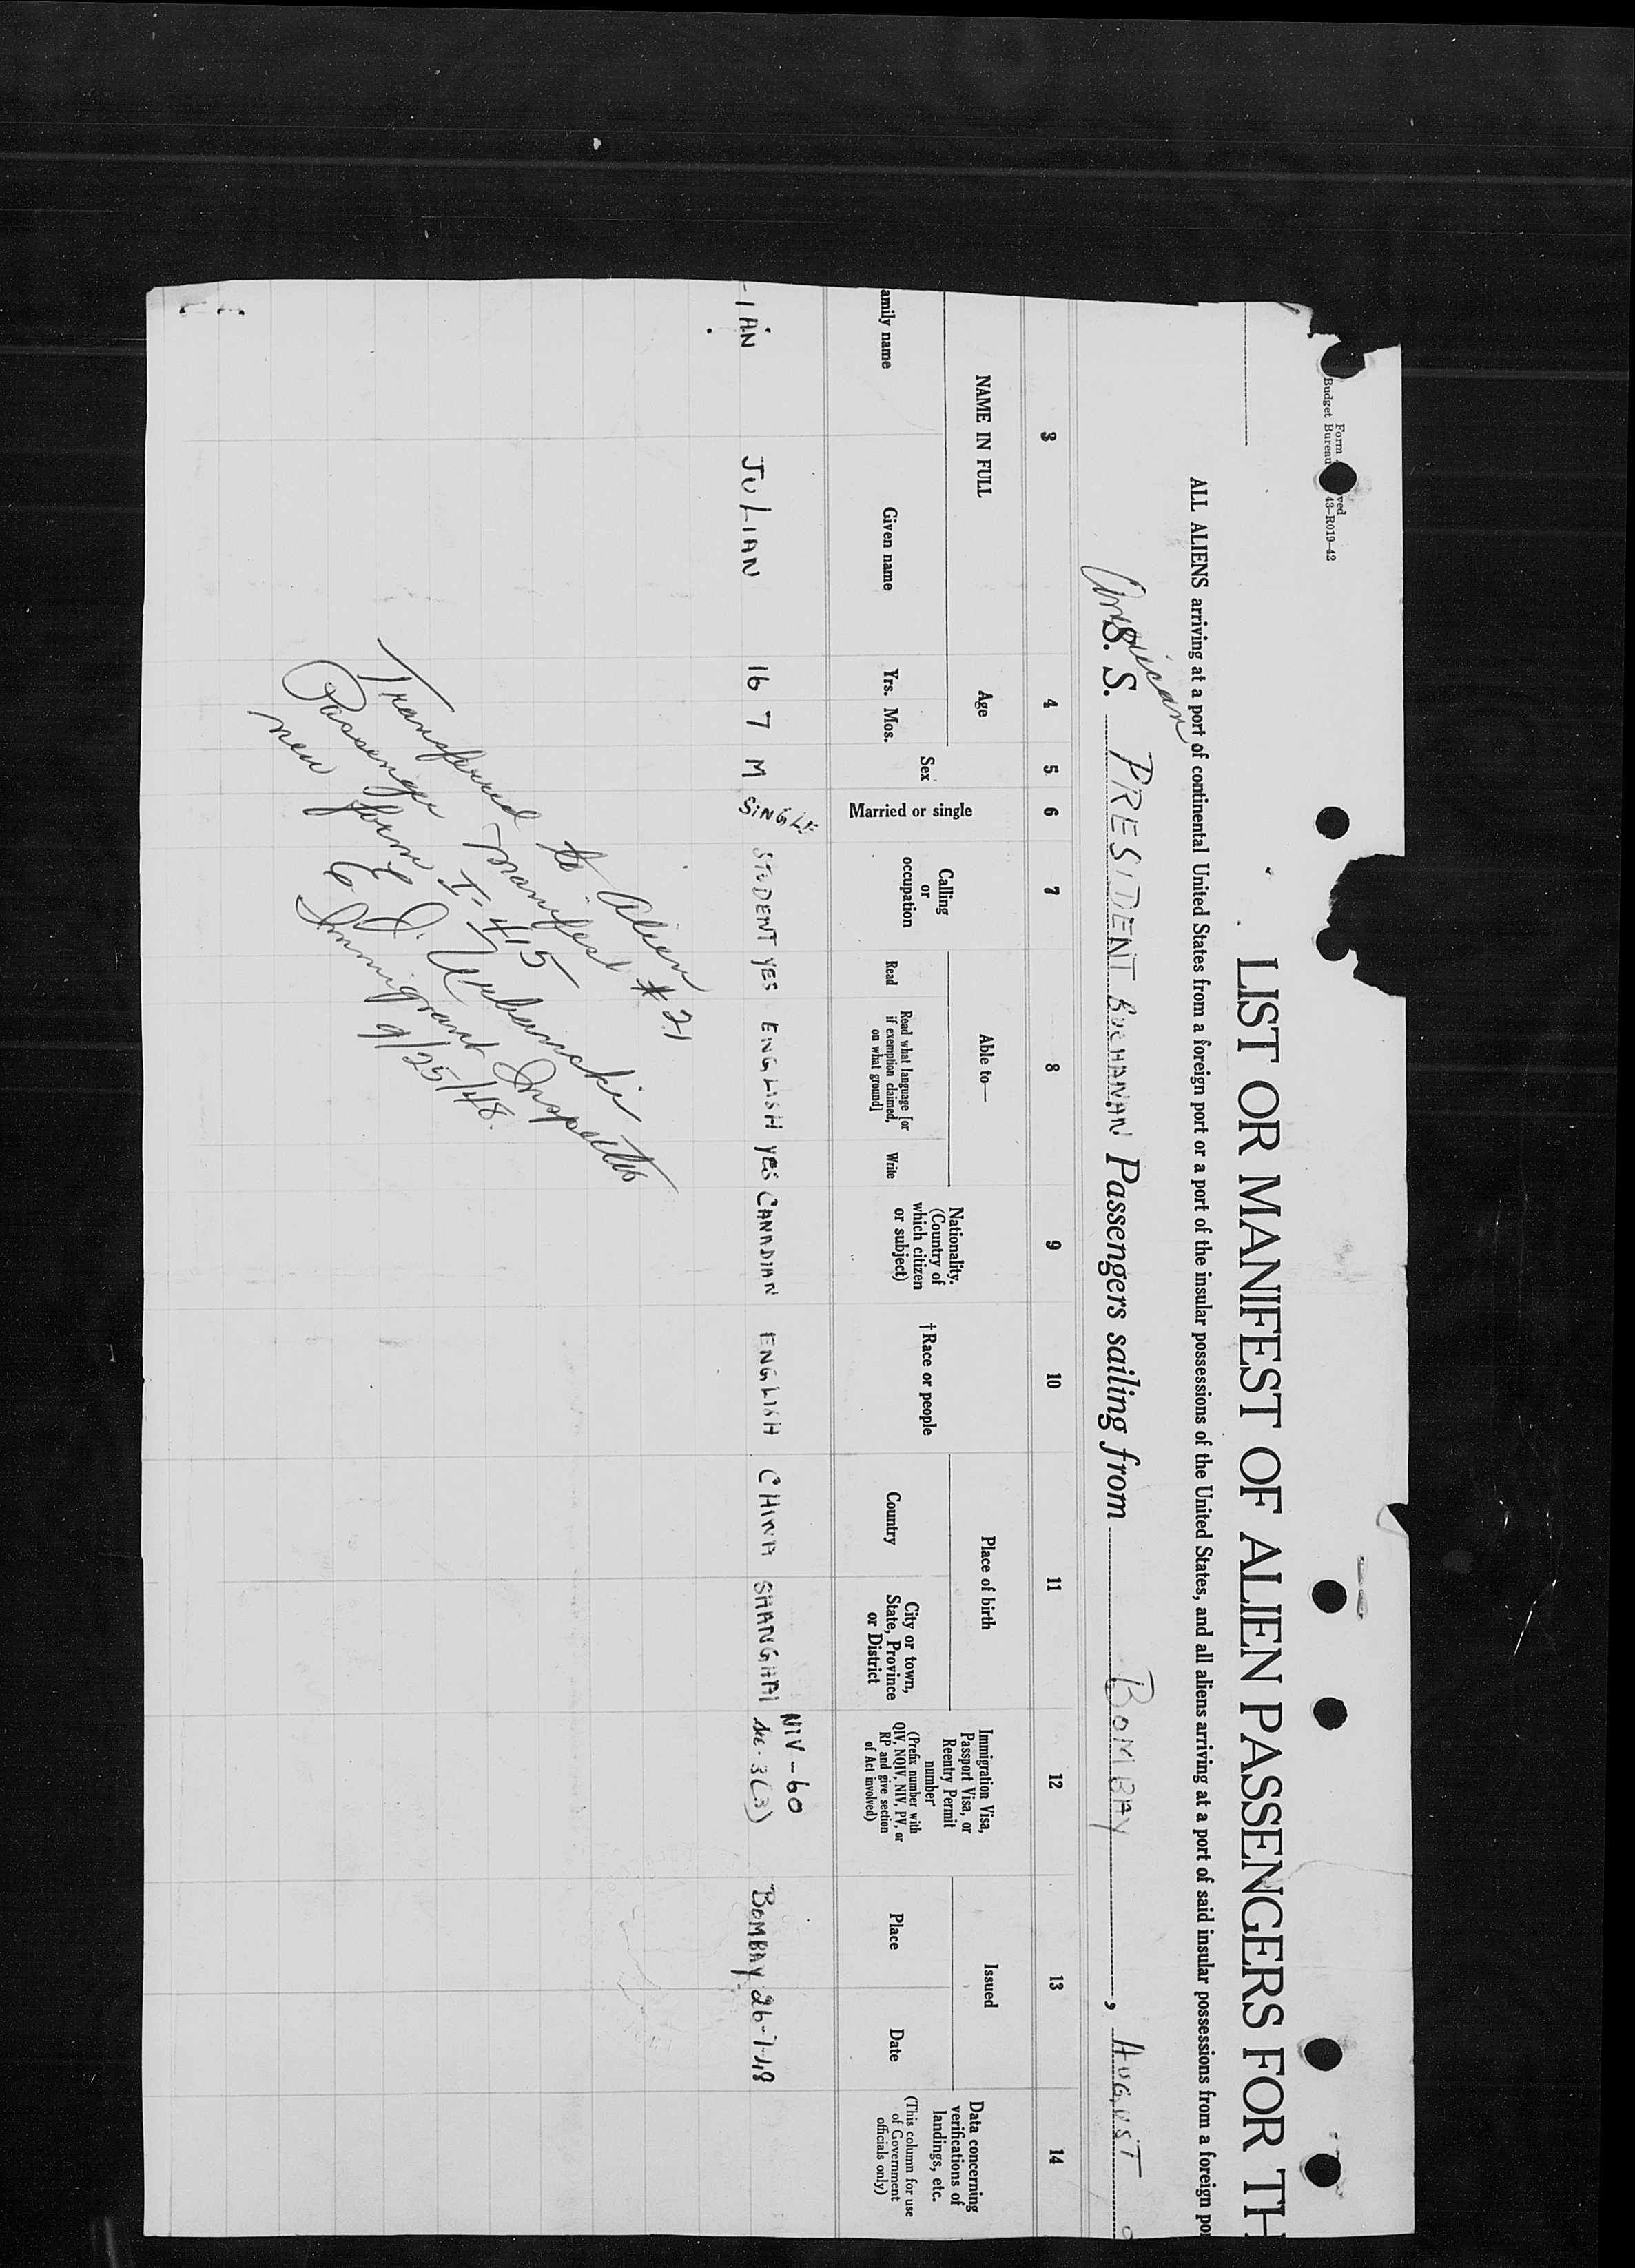 Form ved
Budget Bureau 43-R019-42
LIST OR MANIFEST OF ALIEN PASSENGERS FOR TH
ALL ALIENS arriving at a port of continental United States from a foreign port or a port of the insular possessions of the United States, and all aliens arriving at a port of said insular possessions from a foreign por
American
S. S. PRESIDENT BUCHANAN Passengers sailing from BOMBAY, AUGUST
3 4 5 6 7 8 9 10 11 12 13 14
NAME IN FULL
amily name
Given name
Age
Yrs. Mos.
Sex
Married or single
Calling
or
occupation
Able to—
Read
Read what language [or
if exemption claimed,
on what ground]
Write
Nationality.
(Country of
which citizen
or subject)
†Race or people
Place of birth
Country
City or town,
State, Province
or District
Immigration Visa,
Passport Visa, or
Reentry Permit
number
(Prefix number with
QIV, NQIV, NIV, PV, or
RP and give section
of Act involved)
Issued
Place
Date
Data concerning
verifications of
landings, etc.
(This column for use
of Government
officials only)
NIV-60
IAN JULIAN 16 7 M SINGLE STUDENT YES ENGLISH YES CANADIAN ENGLISH CHINA SHANGHAI sec. 3(3) BOMBAY 26-7-48
Transferred to Alien #21
Passenger Manifest
new form I-415
E. J. Urbanski
Immigrant Inspector
9/25/48.